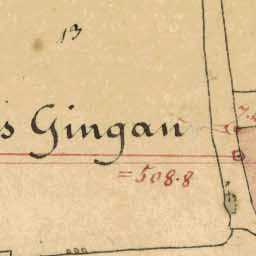 13
s Gingan
=508.8